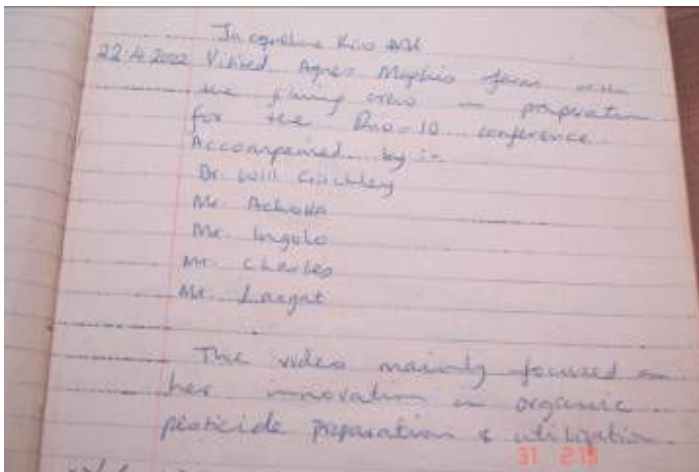 Jacqueline
22.4.2002 Visited Agnes farm with
the crew in preparation
for the Rio-10 conference.
Accompanied by :-
Dr. Will Critchley
Mr. Achoka
Mr.
Mr. Charles
Mr. Langat
The video mainly focused on
her innovation in organic
pesticide preparation & utilization.
31